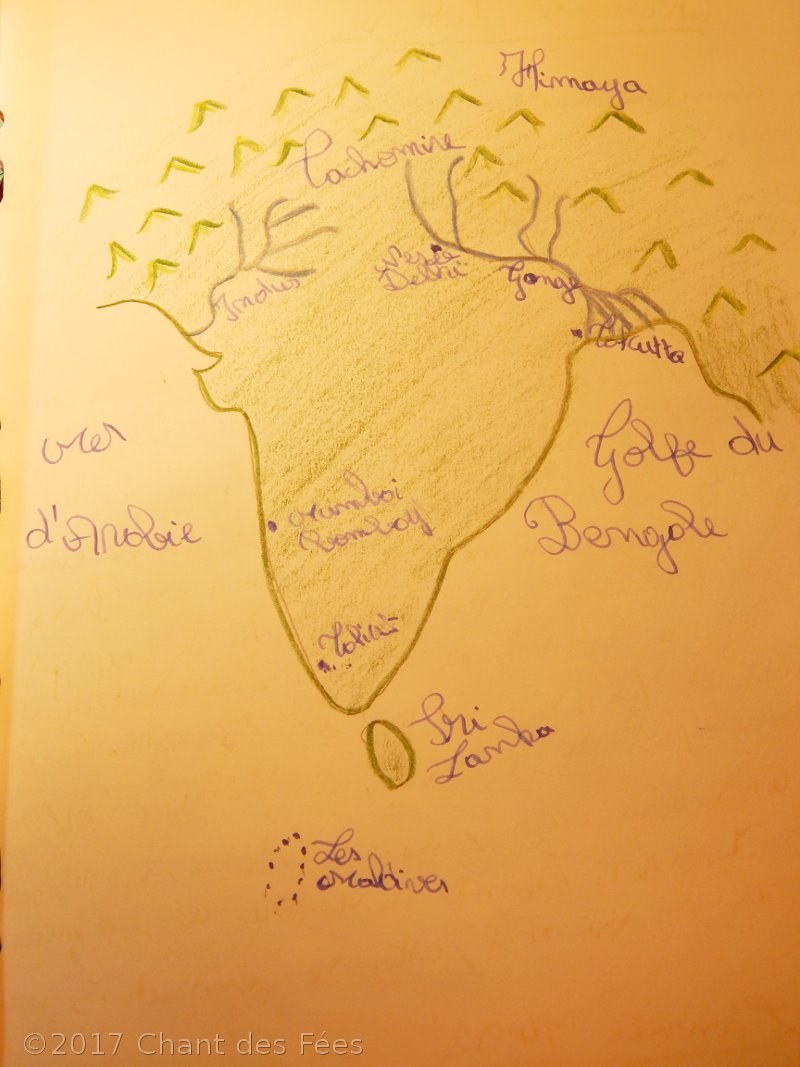 Himaya
Cachemire
Indus
Delhi
Gange
Calcutta
mer
d'Arabie
Golfe du
Bengale
Mumbai
Bombay
Sri
Lanka
Les
Maldives
©2017 Chant des Fées